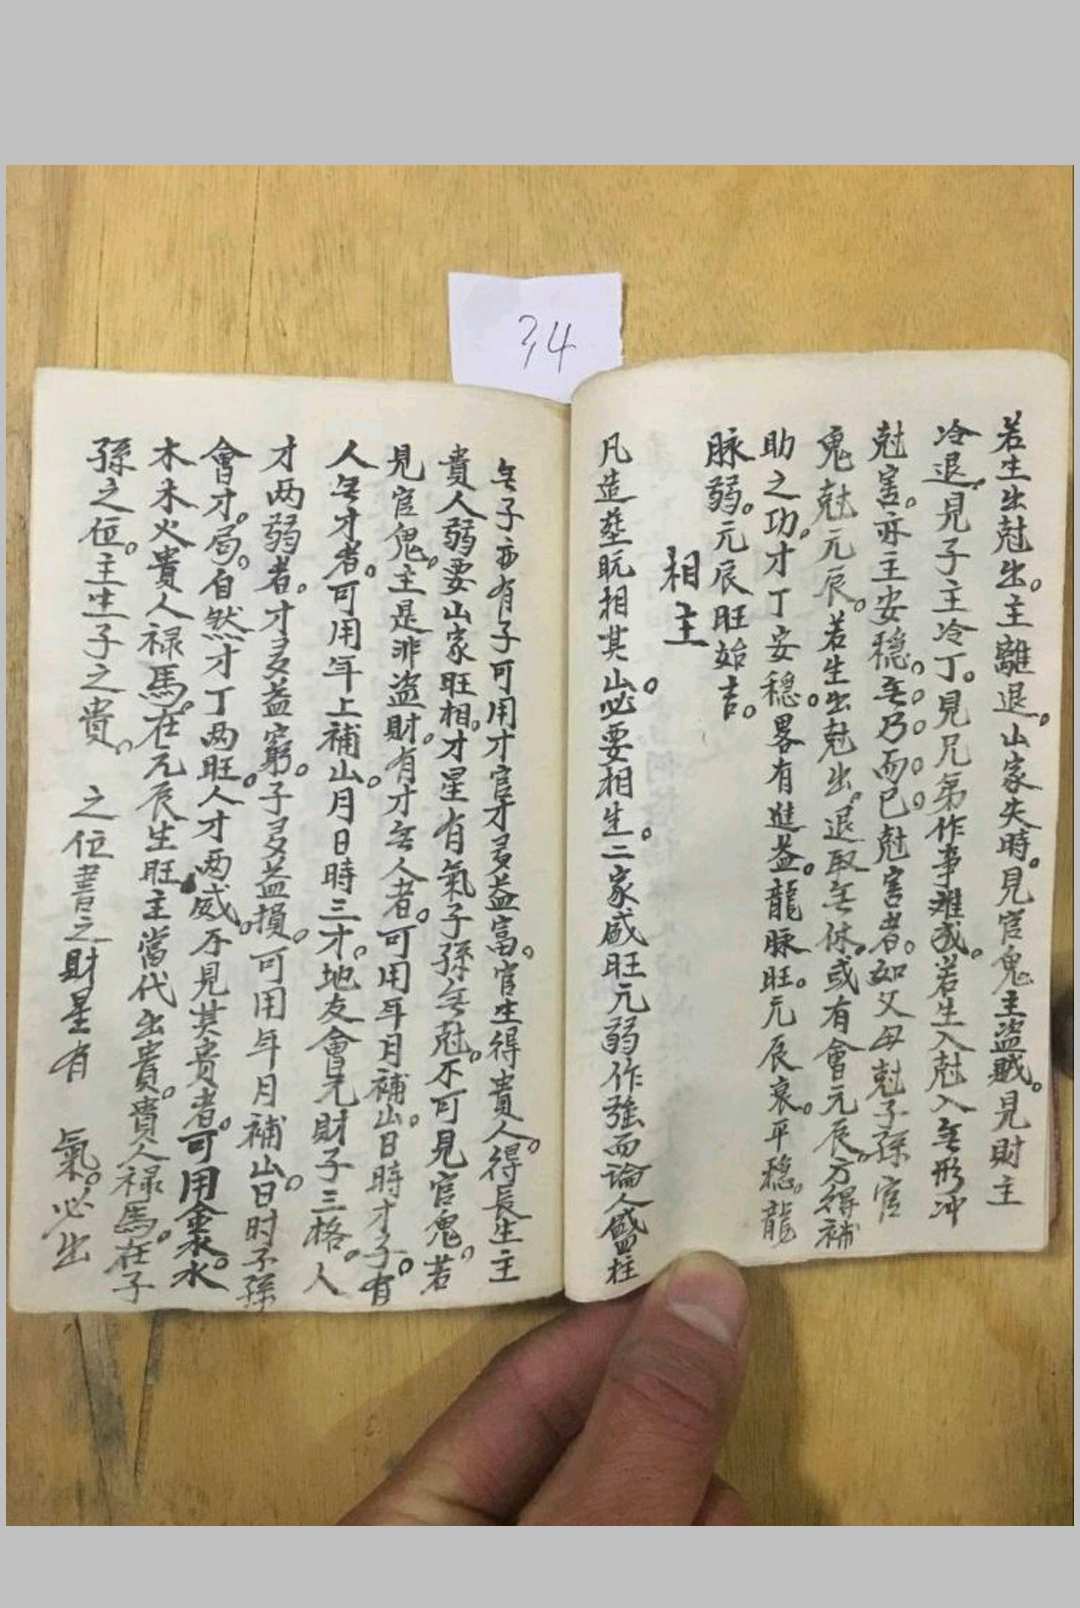 34
若生出尅出。主離退。山家失時。見官鬼主盜賊。見財主
冷退。見子主冷丁。見兄弟作事难成。若生入尅入無形冲
尅害。亦主安穏。無乃而已。尅害者。如父母尅子孫官
鬼尅元辰。若生出尅出。退取無休。或有會元辰。方得補
助之功。才丁安穏。畧有進益。龍脉旺。元辰衰。平穏。龍
脉弱。元辰旺始吉。
相主
凡造塟既相其山。必要相生。二家咸旺元弱作強而論人盤柱
無子亦有子可用才官才多益富。官生得貴人。得長生主
貴人弱要山家旺相。才星有氣子孫無尅。不可見官鬼。若
見官鬼。主是非盜財。有才無人者。可用年月補山。日時才子。有
人無才者。可用年上補山。月日時三才。地支會元財子三格。人
才两弱者。才多益窮。子多益損。可用年月補山。日时不孫
會才。局。自然才丁两旺。人才两咸。不見其貴者。可用金水。水
木木火貴人禄馬。在元辰生旺主當代出貴。貴人禄馬。在子
孫之位。主生子之貴。 之位書之財星有 氣。必出